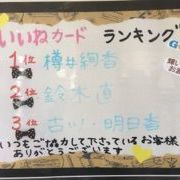 いいねカード ランキング
1位 樽井絢香
2位 鈴木直
3位 古川明日香
いつもご協力して下さっているお客様
ありがとうございます